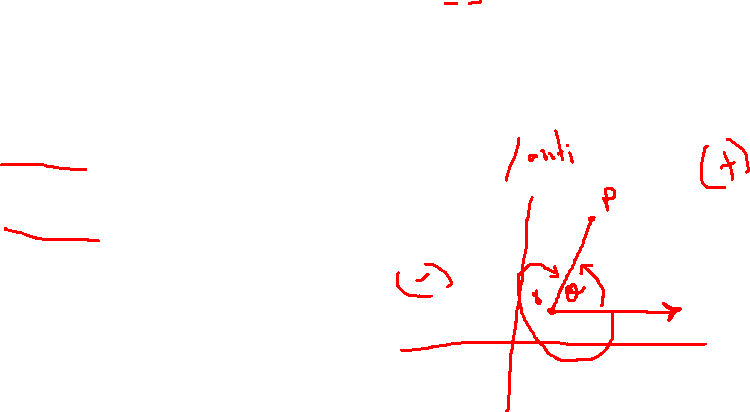 / anti
(+)
P
(-)
r θ